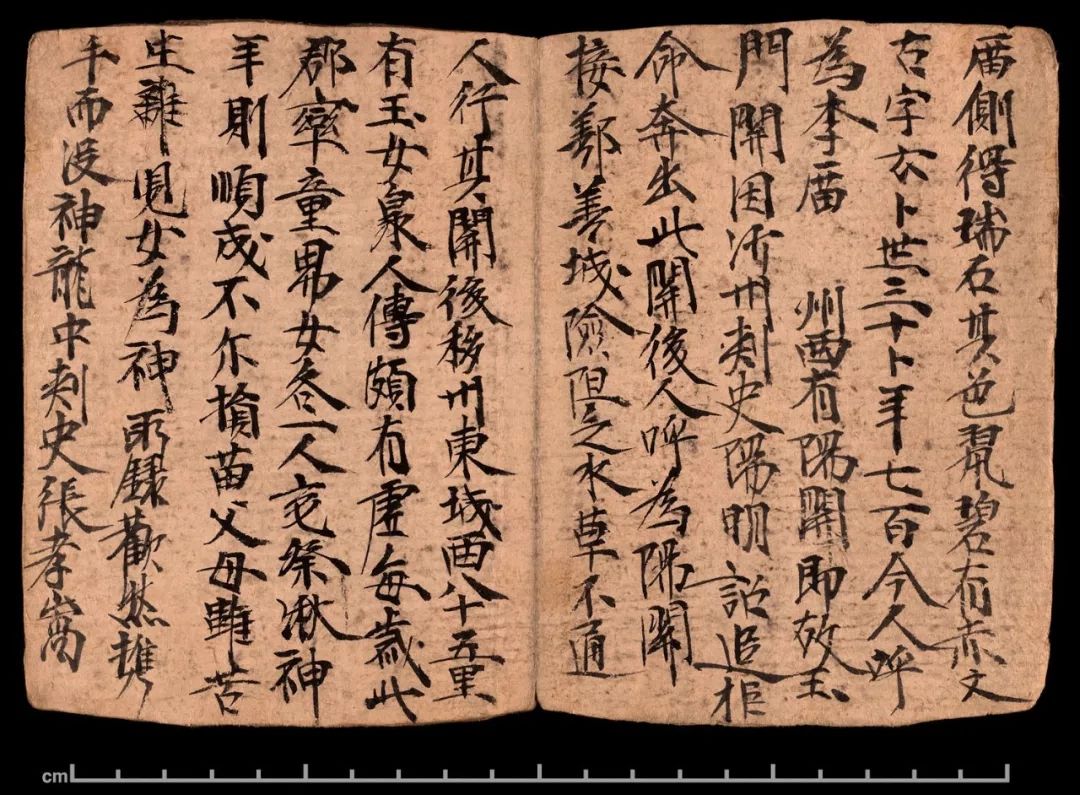 庿側得瑞石其色翠碧有赤文
古字云卜世三十卜年七百今人呼
為李庿 州西有陽關即故玉
門關因沙州刺史陽明詔追拒
命奔出此關後人呼為陽關
接鄯善城險阻乏水草不通
人行其關後移州東城西八十五里
有玉女泉人傳頗有虛每歲此
郡率童男女各一人充祭湫神
年則順成不尔損苗父母雖苦
生離兒女為神所錄歡然携
手而没神龍中刺史張孝嵩